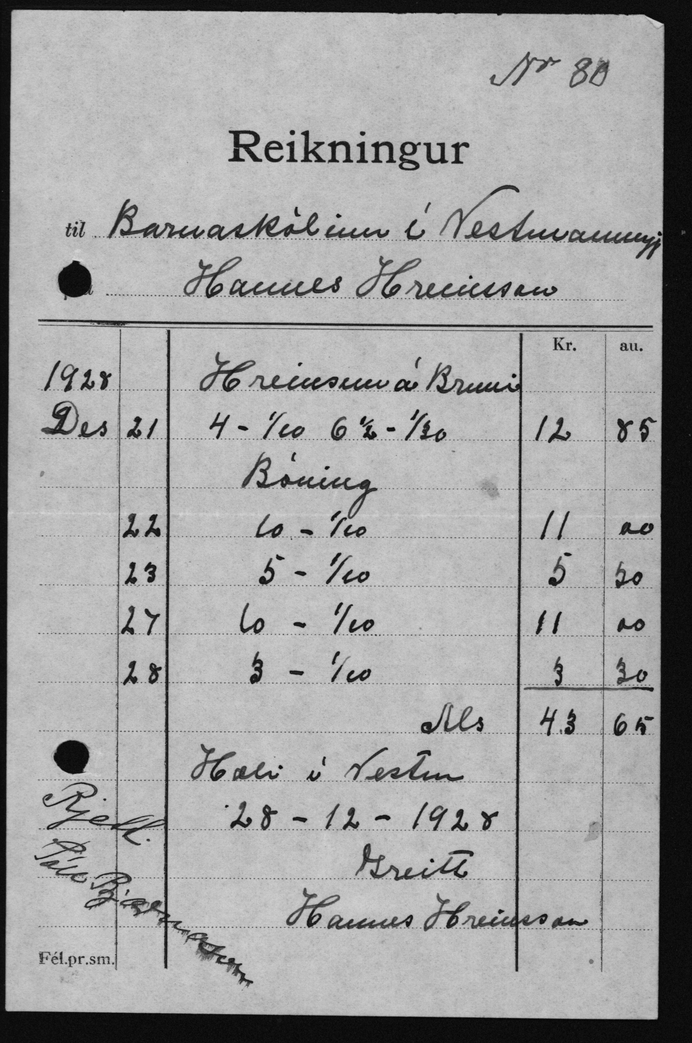 Nr 80
Reikningur
til Barnaskólinn í Vestmanneyj
Hannes Hreinsson
Kr. au.
1928 Hreinsun á Brunni
Des 21 4 - 1/10 6 1/2 - 1/30 12 85
Bóning
22 10 - 1/10 11 00
23 5 - 1/10 5 50
27 10 - 1/10 11 00
28 3 - 1/10 3 30
Als 43 65
Hæli í Vestm
28 - 12 - 1928
Greitt
Hannes Hreinsson
Rjett.
Páll Bjarnason
Fél.pr.sm.